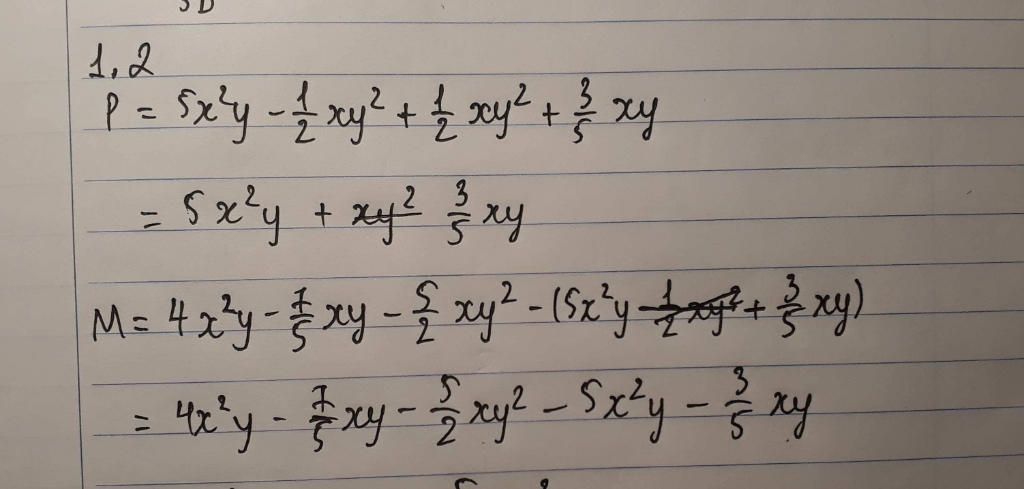 1,2
P = 5x²y - 1/2 xy² + 1/2 xy² + 3/5 xy
= 5x²y + ~~xy²~~ 3/5 xy
M = 4x²y - 7/5 xy - 5/2 xy² - (5x²y ~~- 1/2 xy²~~ + 3/5 xy)
= 4x²y - 7/5 xy - 5/2 xy² - 5x²y - 3/5 xy